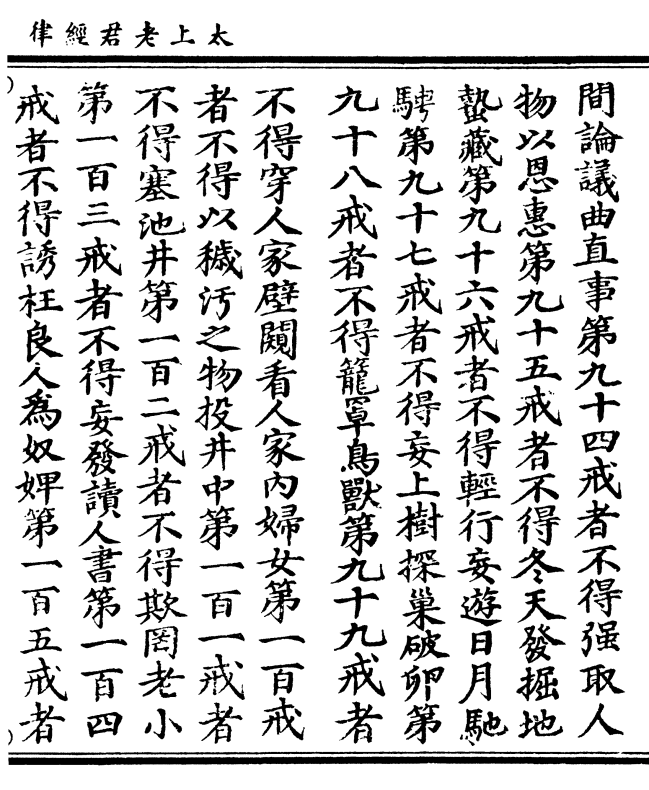 太上老君經律
間論議曲直事第九十四戒者不得强取人
物以恩惠第九十五戒者不得冬天發掘地
蟄藏第九十六戒者不得輕行妄遊日月馳
騁第九十七戒者不得妄上樹探巢破卵第
九十八戒者不得籠罩鳥獸第九十九戒者
不得穿人家壁闚看人家內婦女第一百戒
者不得以穢汚之物投井中第一百一戒者
不得塞池井第一百二戒者不得欺罔老小
第一百三戒者不得妄發讀人書第一百四
戒者不得誘枉良人爲奴婢第一百五戒者